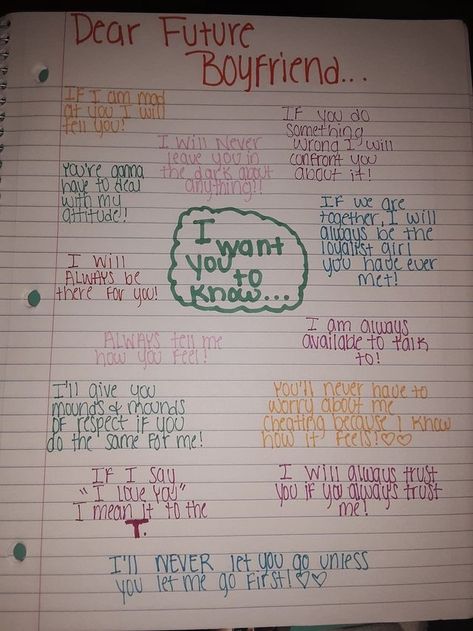 Dear Future
Boyfriend...
IF I am mad
at you I will
tell you!
IF you do
something
wrong I will
confront you
about it!
I Will Never
leave you in
the dark about
anything!!
You're gonna
have to deal
with my
attitude!!
IF we are
together, I will
always be the
loyalist girl
you have ever
met!
I want
you to
know...
I will
ALWAYS be
there for you!
I am always
available to talk
to!
ALWAYS tell me
how you feel!
I'll give you
mounds & mounds
of respect if you
do the same for me!
You'll never have to
worry about me
cheating because I know
how it feels!♡♡
IF I say
"I love you"
I mean it to the
T.
I will always trust
you if you always trust
me!
I'll NEVER let you go unless
you let me go first!♡♡